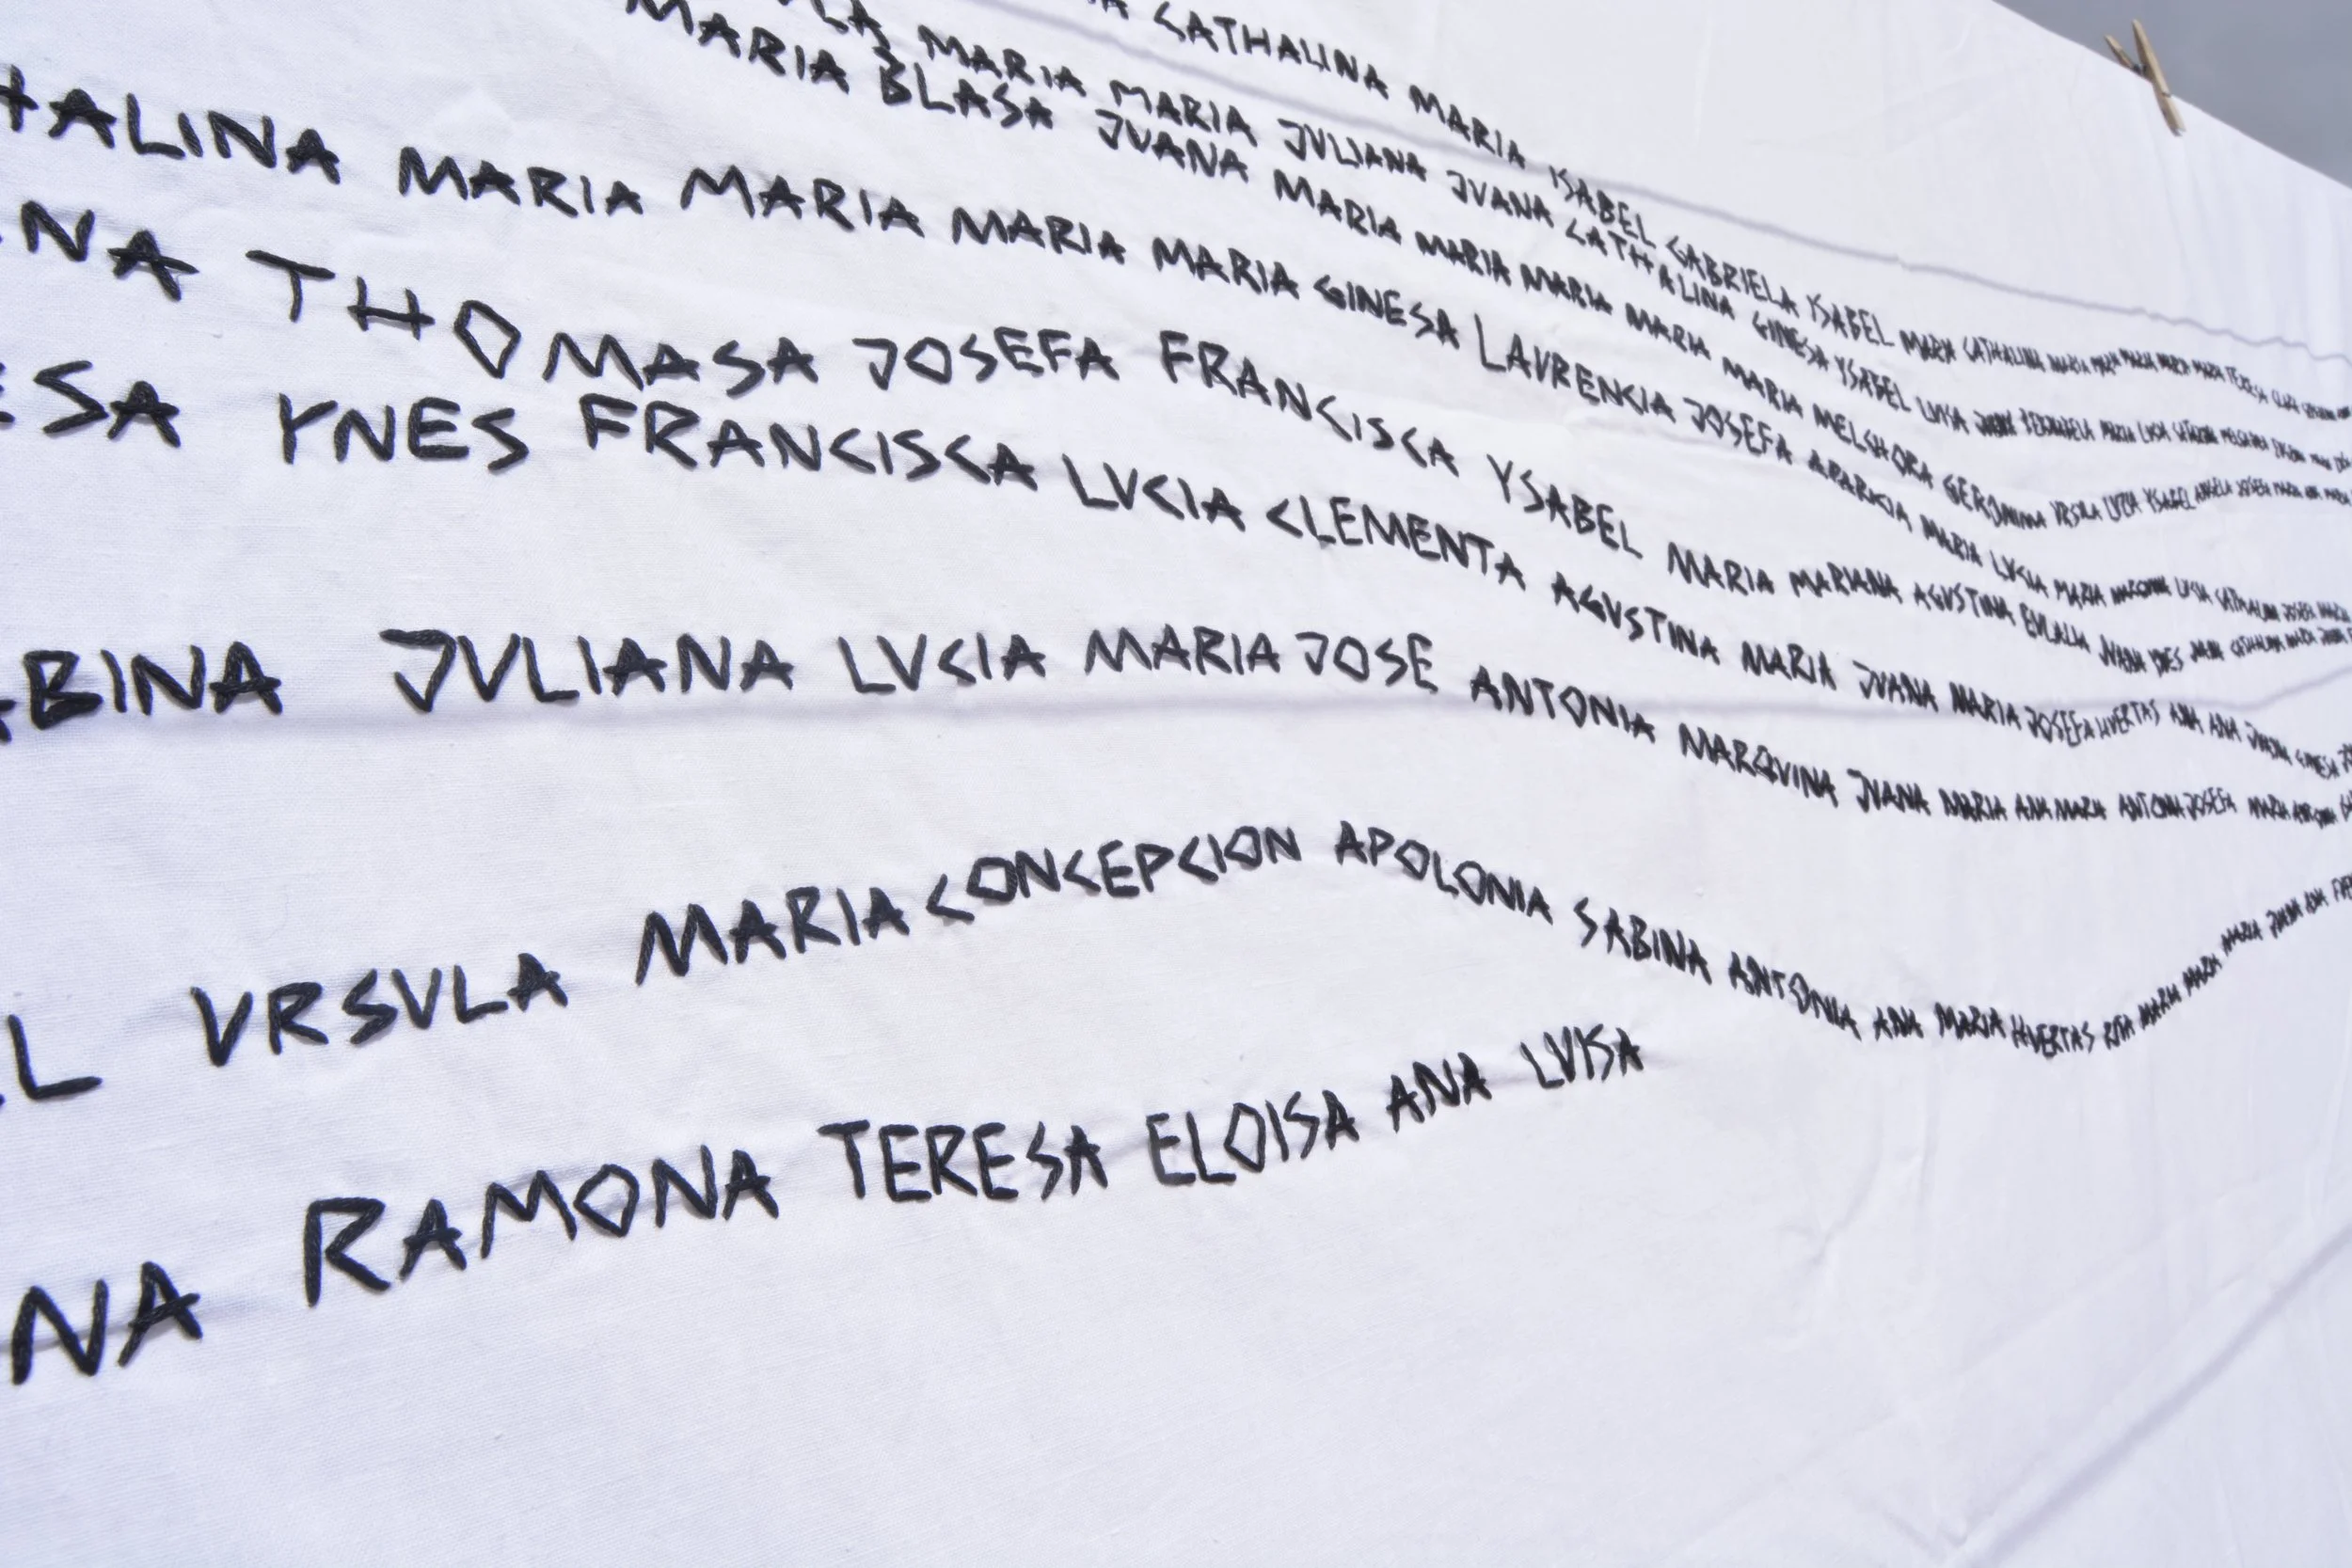 CATHALINA MARIA YSABEL GABRIELA YSABEL MARIA CATHALINA MARIA MARIA MARIA MARIA MARIA TERESA
MARIA MARIA JVLIANA JVANA CATHALINA GINESA YSABEL LVISA
MARIA BLASA JVANA MARIA MARIA MARIA MARIA MARIA MELCHORA GERONIMA VRSVLA LVCIA YSABEL ANGELA JOSEFA MARIA ANA MARIA
HALINA MARIA MARIA MARIA MARIA GINESA LAVRENCIA JOSEFA APARICIA MARIA LVCIA MARIA
NA THOMASA JOSEFA FRANCISCA YSABEL MARIA MARIANA AGVSTINA EVLALIA JVANA YNES
ESA YNES FRANCISCA LVCIA CLEMENTA AGVSTINA MARIA JVANA MARIA JOSEFA HVERTAS ANA ANA JVANA GINESA
ABINA JVLIANA LVCIA MARIA JOSE ANTONIA MARQVINA JVANA MARIA ANA MARIA ANTONIA JOSEFA MARIA
L VRSVLA MARIA CONCEPCION APOLONIA SABINA ANTONIA ANA MARIA HVERTAS RITA MARIA MARIA MARIA JVANA ANA
NA RAMONA TERESA ELOISA ANA LVISA